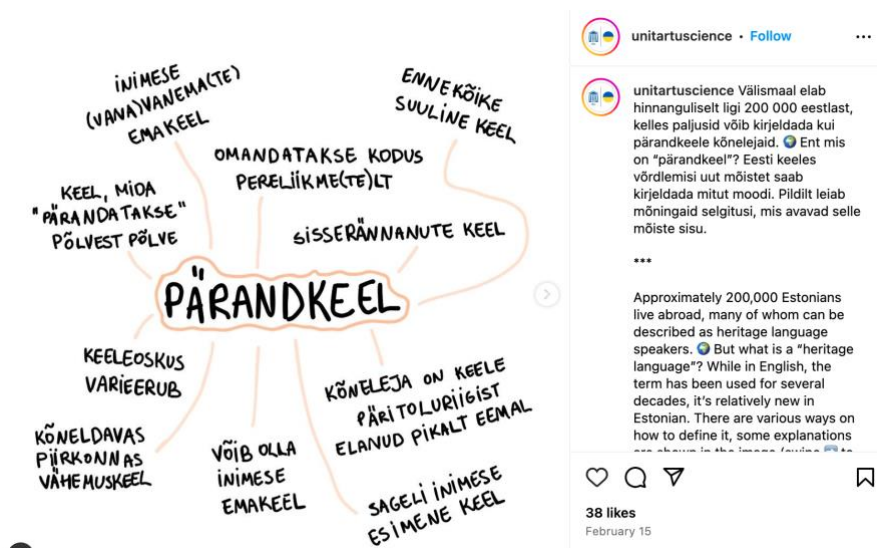 INIMESE
(VANA)VANEMA(TE)
EMAKEEL
ENNEKÕIKE
SUULINE KEEL
OMANDATAKSE KODUS
PERELIIKME(TE)LT
KEEL, MIDA
"PÄRANDATAKSE"
PÕLVEST PÕLVE
SISSERÄNNANUTE KEEL
PÄRANDKEEL
KEELEOSKUS
VARIEERUB
KÕNELEJA ON KEELE
PÄRITOLURIIGIST
ELANUD PIKALT EEMAL
KÕNELDAVAS
PIIRKONNAS
VÄHEMUSKEEL
VÕIB OLLA
INIMESE
EMAKEEL
SAGELI INIMESE
ESIMENE KEEL
unitartuscience • Follow
unitartuscience Välismaal elab
hinnanguliselt ligi 200 000 eestlast,
kelles paljusid võib kirjeldada kui
pärandkeele kõnelejaid. 🌍 Ent mis
on “pärandkeel”? Eesti keeles
võrdlemisi uut mõistet saab
kirjeldada mitut moodi. Pildilt leiab
mõningaid selgitusi, mis avavad selle
mõiste sisu.
***
Approximately 200,000 Estonians
live abroad, many of whom can be
described as heritage language
speakers. 🌍 But what is a “heritage
language”? While in English, the
term has been used for several
decades, it’s relatively new in
Estonian. There are various ways on
how to define it, some explanations
are shown in the image (swipe ➡️ to
38 likes
February 15